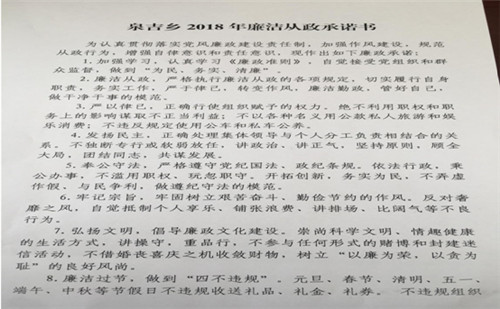 泉吉乡 2018 年廉洁从政承诺书
为认真贯彻落实党风廉政建设责任制，加强作风建设，规范
从政行为，增强自律意识和责任意识，现作出如下廉政承诺：
1.加强学习，认真学习《廉政准则》，自觉接受党组织和群
众监督，做到“为民、务实、清廉”。
2.廉洁从政，严格执行廉洁从政的各项规定，切实履行自身
职责，务实工作，严于律己，转变作风，廉洁勤政，管好自己，
做干净干事的模范。
3.严以律己，正确行使组织赋予的权力。绝不利用职权和职
务上的影响谋取不正当利益；不以各种名义用公款私人旅游和娱
乐消费；不违反规定使用公车和私车公养。
4.发扬民主，正确处理集体领导与个人分工负责相结合的关
系。不独断专行或软弱放任，讲政治、讲正气，坚持原则，顾全
大局，团结同志，共谋发展。
5.奉公守法，严格遵守党纪国法、政纪条规。依法行政，秉
公办事，不滥用职权、玩忽职守。开拓创新，务实为民，不弄虚
作假、与民争利，做遵纪守法的模范。
6.牢记宗旨，牢固树立艰苦奋斗、勤俭节约的作风。反对奢
靡之风，自觉抵制个人享乐、铺张浪费、讲排场、比阔气等不良
行为。
7.弘扬文明，倡导廉政文化建设。崇尚科学文明、情趣健康
的生活方式，讲操守，重品行，不参与任何形式的赌博和封建迷
信活动，不借婚丧喜庆之机收敛财物，树立“以廉为荣，以贪为
耻”的良好风尚。
8.廉洁过节，做到“四不违规”。元旦、春节、清明、五一、
端午、中秋等节假日不违规收送礼品、礼金、礼券。不违规组织